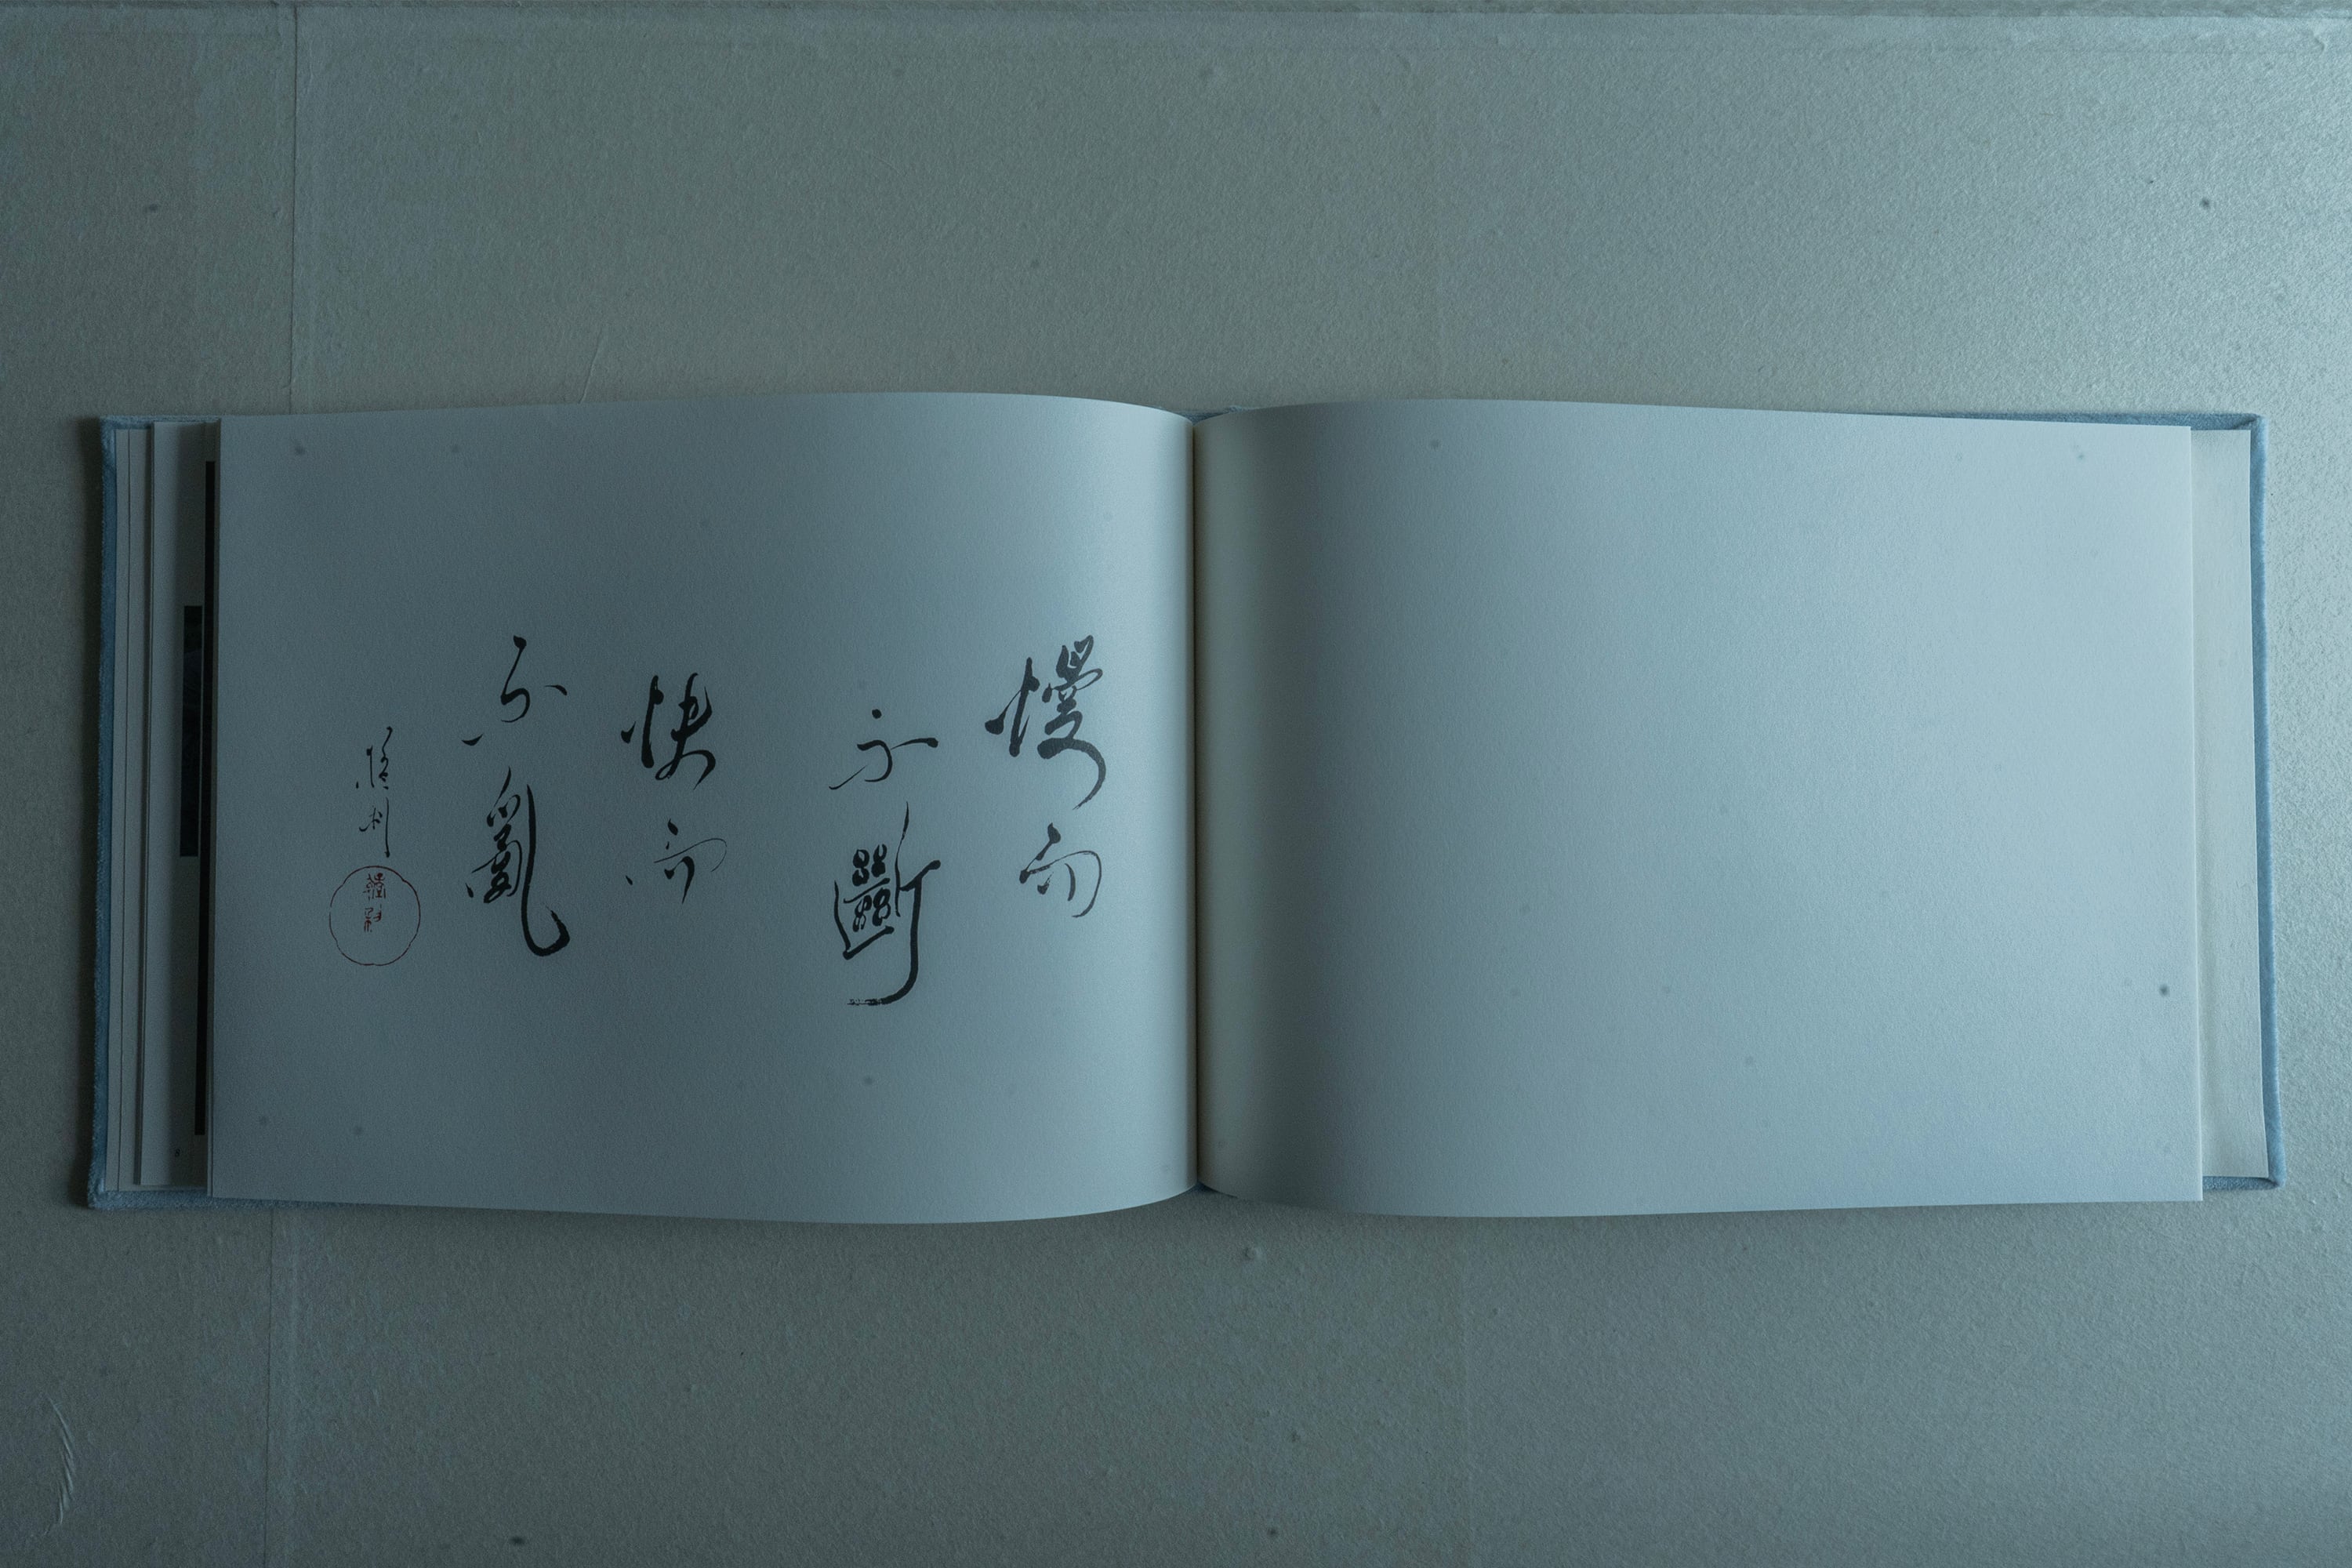 慢而
不斷
快而
不亂